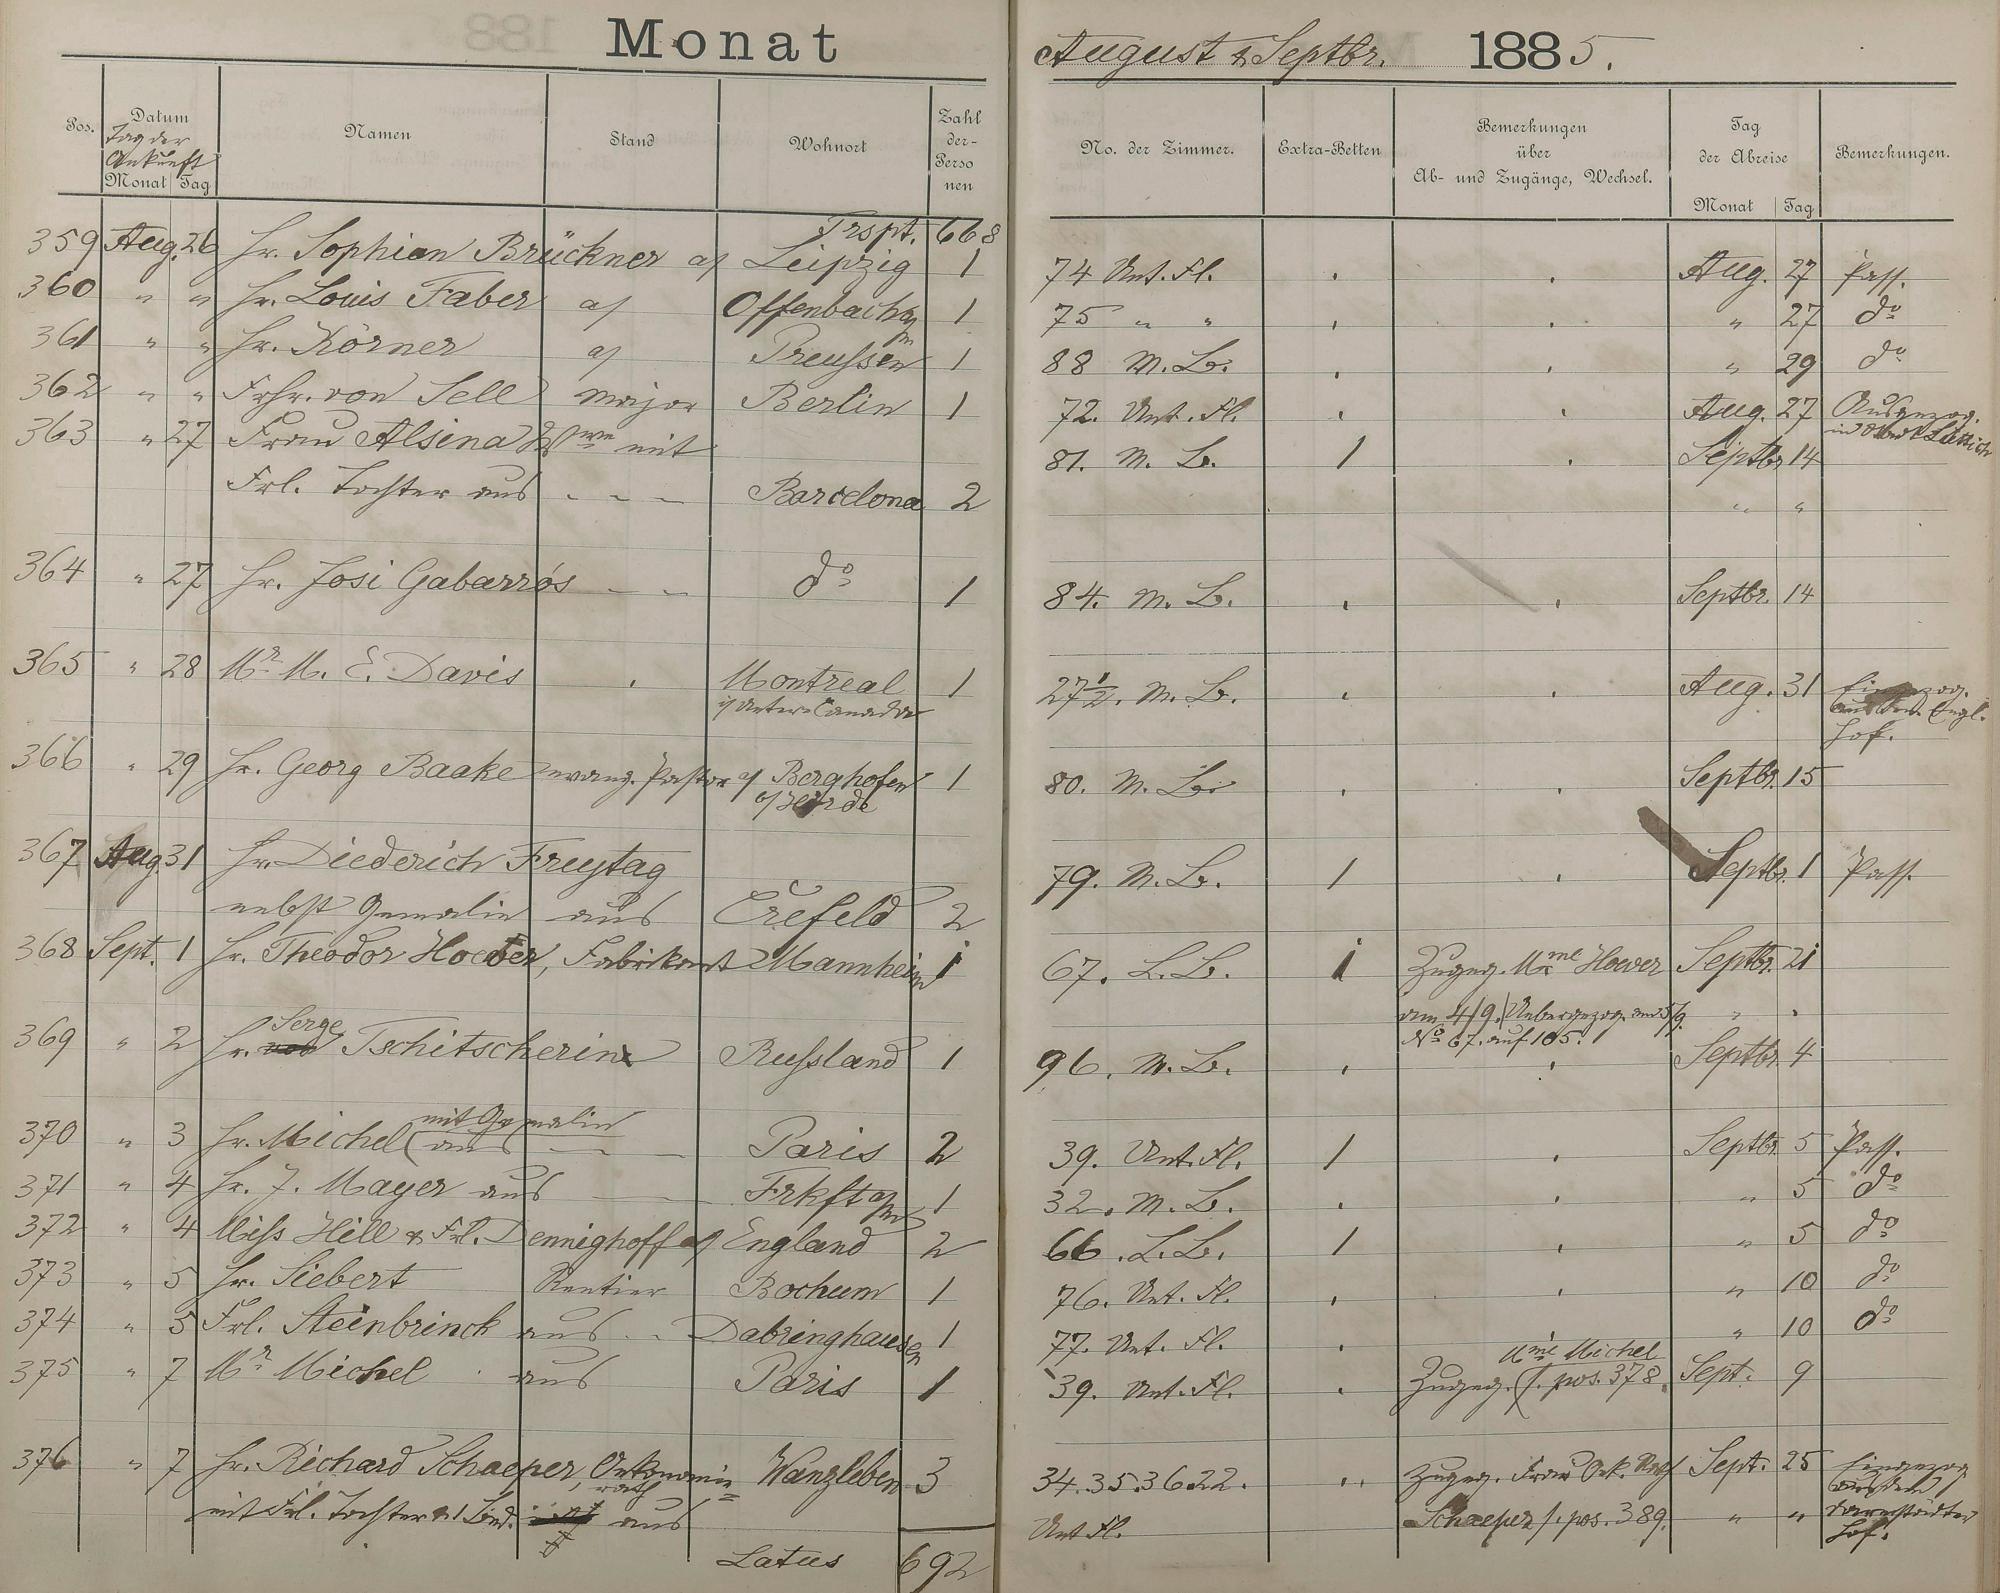 Monat August & Septbr. 1885.
Pos. Datum Namen Stand Wohnort Zahl der Personen No. der Zimmer. Extra-Betten Bemerkungen über Ab- und Zugänge, Wechsel. Tag der Abreise Bemerkungen.
Tag der Ankunft
Monat Tag Monat Tag
Trspt. 668
359 Aug. 26 Hr. Sophian Brückner a/ Leipzig 1 74 Unt. Fl. Aug. 27 Pass.
360 " " Hr. Louis Faber a/ Offenbach a/m 1 75 " " " 27 do
361 " " Hr. Körner a/ Preussen 1 88 M. B. " 29 do
362 " " Frhr. von Sell Major Berlin 1 72. Unt. Fl. Aug. 27 Ausgezog.
363 " 27 Frau Alsina Wwe mit 81. M. B. 1 Septbr 14
Frl. Tochter aus - - - Barcelona 2 " "
364 " 27 Hr. Josi Gabarrós - - do 1 84. M. B. Septbr. 14
365 " 28 Mr M. E. Davis Montreal 1 27½. M. B. Aug. 31 Eingezog.
i/ Unter-Canada Engl.
Hof.
366 " 29 Hr. Georg Baake evang. Pastor a/ Berghofen 1 80. M. B. Septbr. 15
367 Aug. 31 Hr. Diederich Freytag 79. M. B. 1 Septbr. 1 Pass.
nebst Gemalin aus Crefeld 2
368 Sept. 1 Hr. Theodor Hoever, Fabrikant Mannheim 1 67. L. B. 1 Zugeg. Mme Hoever Septbr. 21
am 4/9. Uebergezog. am 5/9. " "
No 67. auf 105.
369 " 2 Hr. Serge Tschitscherin Russland 1 96. M. B. Septbr. 4
mit Gemalin
370 " 3 Hr. Michel (aus - - Paris 2 39. Unt. Fl. 1 Septbr. 5 Pass.
371 " 4 Hr. J. Mayer aus - Frkft a/m 1 32. M. B. " 5 do
372 " 4 Miss Hill & Frl. Dennighoff a/ England 2 66. L. B. 1 " 5 do
373 " 5 Hr. Siebert Rentier Bochum 1 76. Unt. Fl. " 10 do
374 " 5 Frl. Steinbrinck aus Dabringhausen 1 77. Unt. Fl. " 10 do
Mme Michel
375 " 7 Mr Michel aus Paris 1 39. Unt. Fl. Zugeg. (s. pos. 378. Sept. 9
376 " 7 Hr. Richard Schaeper, Oekonomie- Wanzleben 3 34. 35. 36. 22. Zugeg. Frau Oek. Rath Sept. 25 Eingezog
rath aus dem
mit Frl. Tochter & 1 Bed. aus Unt Fl. Schaeper s. pos. 389. " " Darmstädter
Hof.
Latus 692